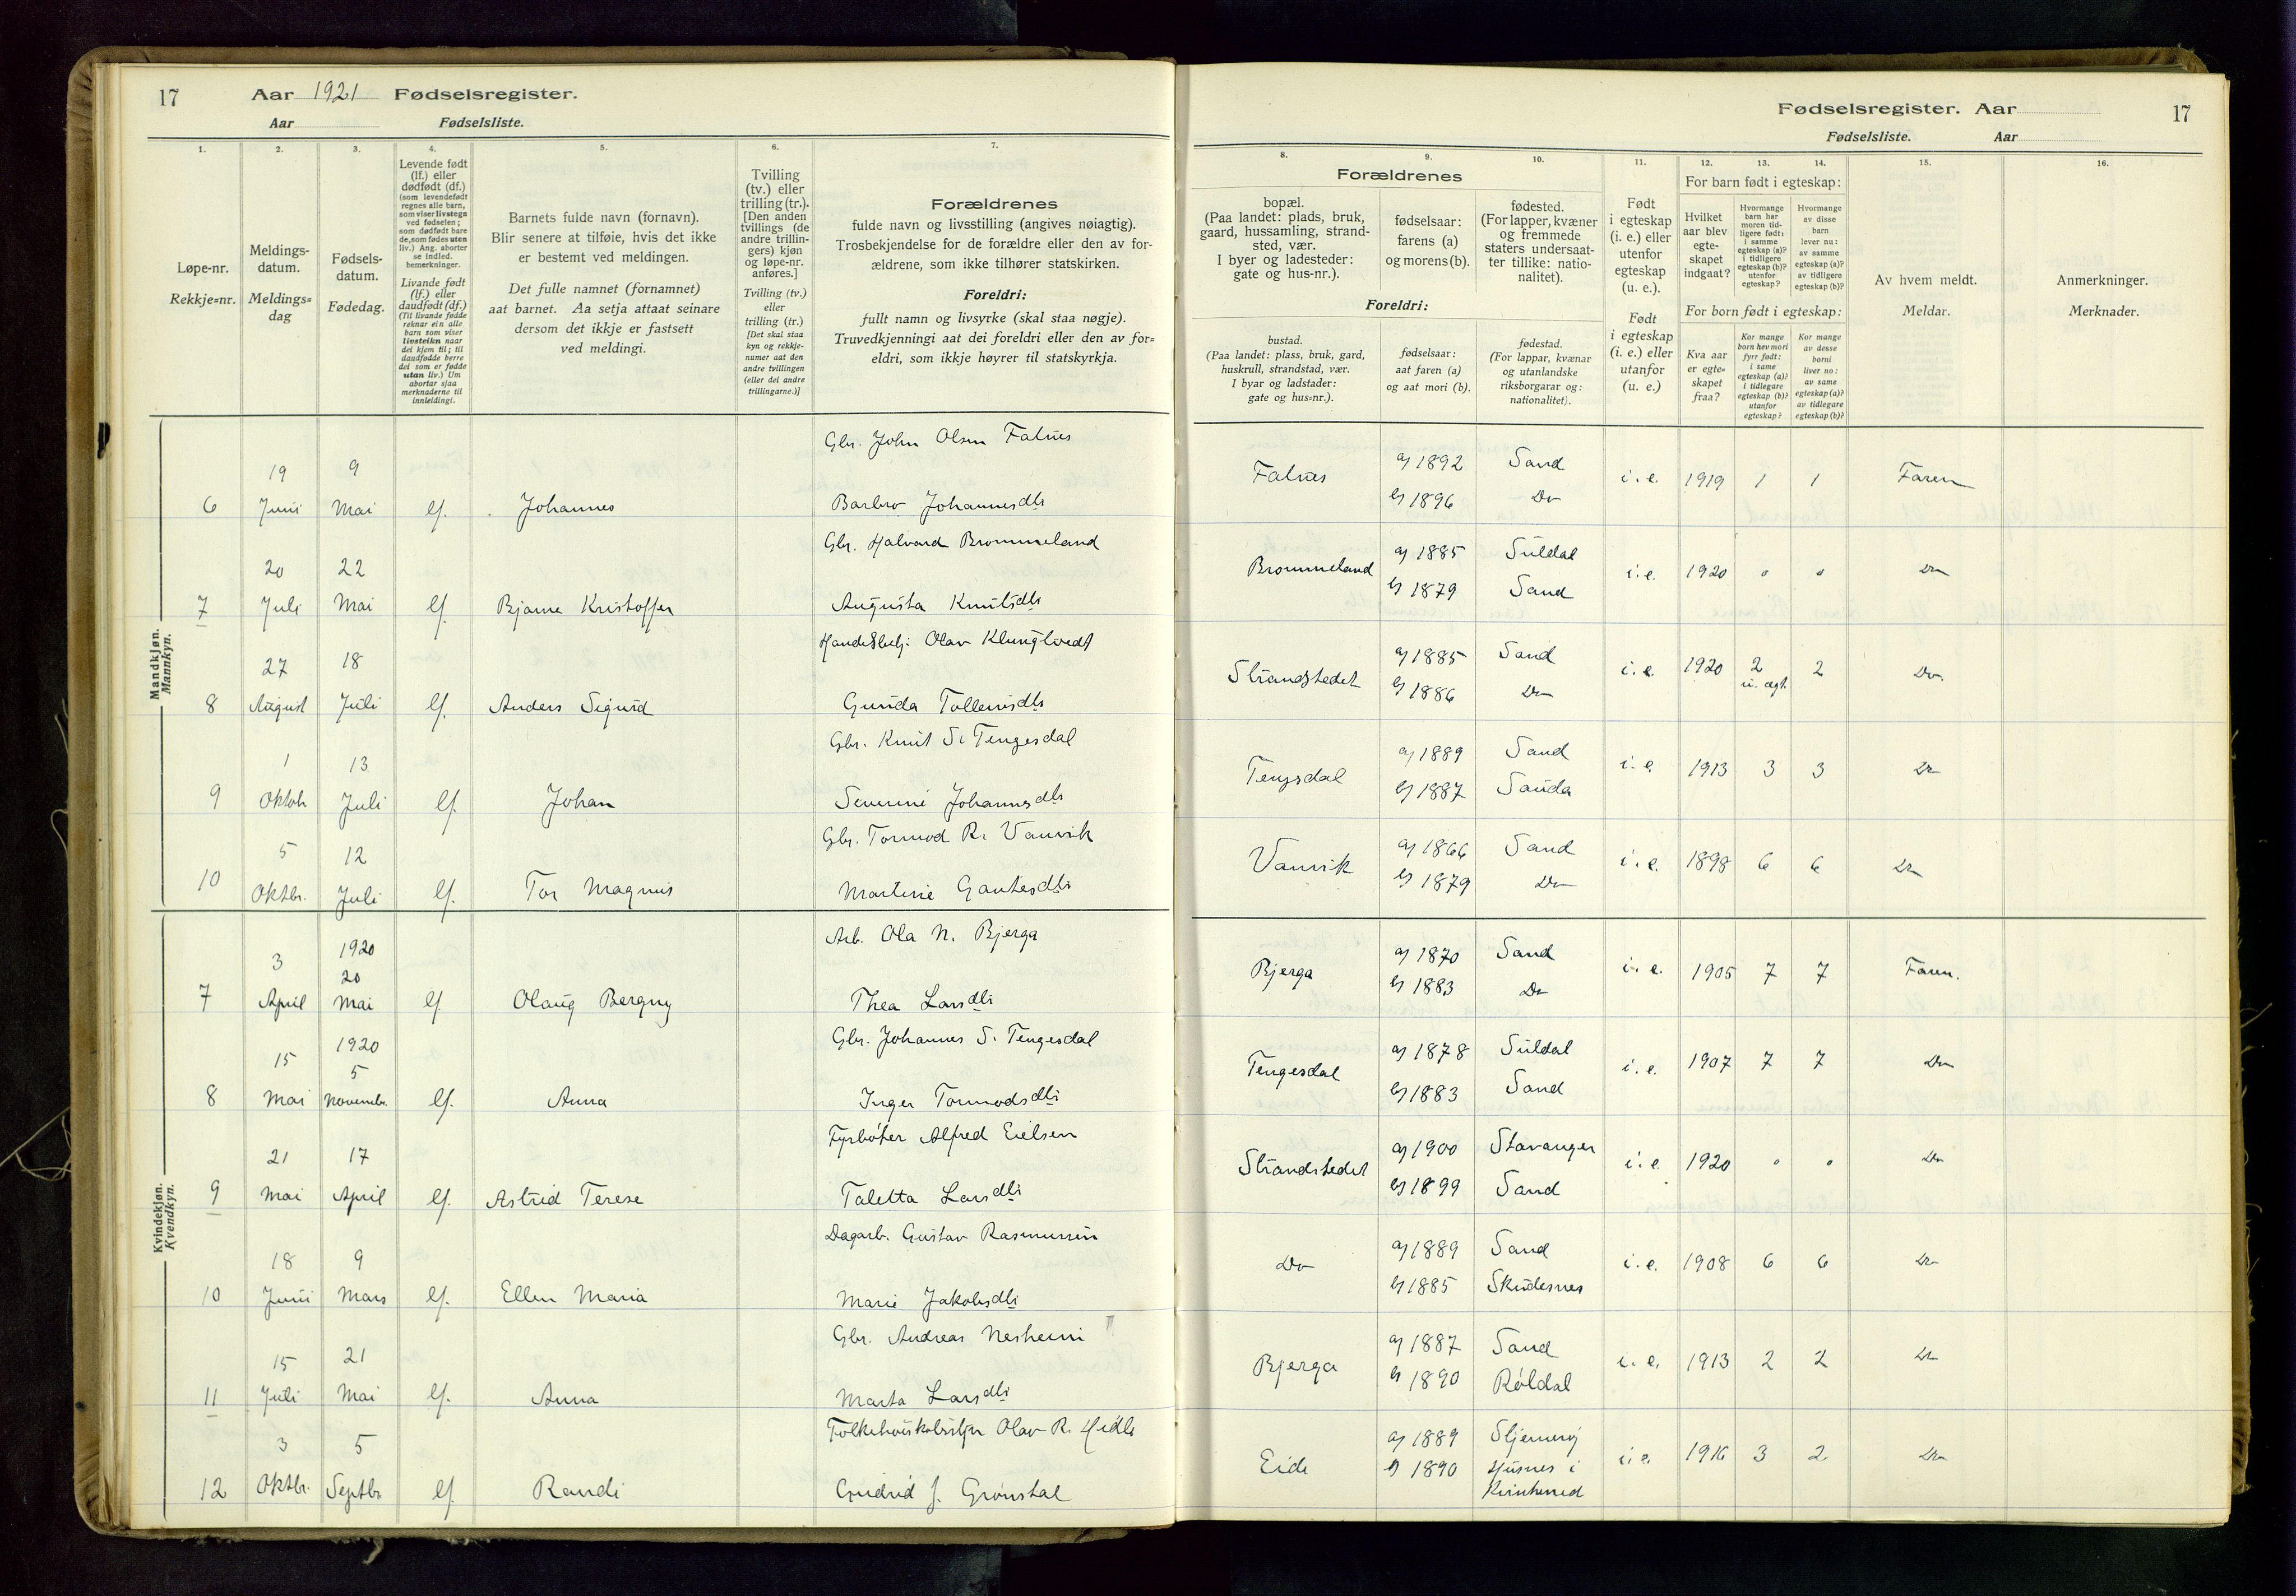 17 Aar 1921 Fødselsregister.
Aar Fødselsliste.
1. 2. 3. 4. 5. 6. 7.
Løpe-nr.
Rekkje=nr.
Meldings-
datum.
Meldings=
dag
Fødsels-
datum.
Fødedag.
Levende født
(lf.) eller
dødfødt (df.)
(som levendefødt
regnes alle barn,
som viser livstegn
ved fødselen;
som dødfødt bare
de, som fødes uten
liv.) Ang. aborter
se indled.
bemerkninger.
Livande født
(lf.) eller
daudfødt (df.)
(Til livande fødde
reknar ein alle
barn som viser
livsteikn naar
dei kjem til; til
daudfødde berre
dei som er fødde
utan liv.) Um
abortar sjaa
merknaderne til
innleidingi.
Barnets fulde navn (fornavn).
Blir senere at tilføie, hvis det ikke
er bestemt ved meldingen.
Det fulle namnet (fornamnet)
aat barnet. Aa setja attaat seinare
dersom det ikkje er fastsett
ved meldingi.
Tvilling
(tv.) eller
trilling (tr.).
[Den anden
tvillings (de
andre trillin-
gers) kjøn
og løpe-nr.
anføres.]
Tvilling (tv.)
eller
trilling (tr.)
[Det skal staa
kyn og rekkje-
numer aat den
andre tvillingen
(eller dei andre
trillingarne.)]
Forældrenes
fulde navn og livsstilling (angives nøiagtig).
Trosbekjendelse for de forældre eller den av for-
ældrene, som ikke tilhører statskirken.
Foreldri:
fullt namn og livsyrke (skal staa nøgje).
Truvedkjenningi aat dei foreldri eller den av for=
eldri, som ikkje høyrer til statskyrkja.
Mandkjøn.
Mannkyn.
Gbr. John Olsen Falnes
19 9
6 Juni Mai lf. Johannes Barbro Johannesdtr
Gbr. Halvard Brommeland
20 22
7 Juli Mai lf. Bjarne Kristoffer Augusta Knutsdtr
Olav
27 18
8 August Juli lf. Anders Sigurd Gunda Tolleivsdtr
Gbr. Knut S. Tengesdal
1 13
9 Oktob. Juli lf. Johan Severine Johannesdtr
Gbr. Tormod R. Vanvik
5 12
10 Oktbr. Juli lf. Tor Magnus Martine Gautesdtr
Kvindekjøn.
Kvendkyn.
Arb. Ola N. Bjerga
3 1920
20
7 April Mai lf. Olaug Bergny Thea Larsdtr
Gbr. Johannes S. Tengesdal
15 1920
5
8 Mai Novembr. lf. Anna Inger Tormodsdtr
Fyrbøter Alfred Eielsen
21 17
9 Mai April lf. Astrid Terese Taletta Larsdtr
Dagarb. Gustav Rasmussen
18 9
10 Juni Mars lf. Ellen Maria Marie Jakobsdtr
Gbr. Andreas Nesheim
15 21
11 Juli Mai lf. Anna Marta Larsdtr
Olav R.
3 5
12 Oktbr. Septbr. lf. Randi Gudrid J. Grønstal
Fødselsregister. Aar 17
Fødselsliste. Aar
8. 9. 10. 11. 12. 13. 14. 15. 16.
Forældrenes
bopæl.
(Paa landet: plads, bruk,
gaard, hussamling, strand-
sted, vær.
I byer og ladesteder:
gate og hus-nr.).
fødselsaar:
farens (a)
og morens (b).
fødested.
(For lapper, kvæner
og fremmede
staters undersaat-
ter tillike: natio-
nalitet).
Foreldri:
bustad.
(Paa landet: plass, bruk, gard,
huskrull, strandstad, vær.
I byar og ladstader:
gate og hus=nr.).
fødselsaar:
aat faren (a)
og aat mori (b).
fødestad.
(For lappar, kvænar
og utanlandske
riksborgarar og:
nationalitet).
Født
i egteskap
(i. e.) eller
utenfor
egteskap
(u. e.).
Født
i egteskap
(i. e.) eller
utanfor
(u. e.)
For barn født i egteskap:
Hvilket
aar blev
egte-
skapet
indgaat?
Hvormange
barn har
moren tid-
ligere født:
i samme
egteskap (a)?
i tidligere
egteskap (b)?
utenfor
egteskap?
Hvormange
av disse
barn
lever nu:
av samme
egteskap (a)?
av tidligere
egteskap (b)?
For born født i egteskap:
Kva aar
er egte=
skapet
fraa?
Kor mange
born hev mori
fyrr født:
i same
egteskap (a)?
i tidlegare
egteskap (b)?
utanfor
egteskap?
Kor mange
av desse
borni
liver no:
av same
egteskap (a)?
av tidlegare
egteskap (b)?
Av hvem meldt.
Meldar.
Anmerkninger.
Merknader.
Falnes a) 1892 Sand i. e. 1919 1 1 Faren
b) 1896 Do
Brommeland a) 1885 Suldal i. e. 1920 0 0 Do
b) 1879 Sand
Strandstedet a) 1885 Sand i. e. 1920 2 2 Do.
b) 1886 Do u. ægt.
Tengsdal a) 1889 Sand i. e. 1913 3 3 Do
b) 1887 Sauda
Vanvik a) 1866 Sand i. e. 1898 6 6 Do
b) 1879 Do
Bjerga a) 1870 Sand i. e. 1905 7 7 Faren.
b) 1883 Do
Tengesdal a) 1878 Suldal i. e. 1907 7 7 Do
b) 1883 Sand
Strandstedet a) 1900 Stavanger i. e. 1920 0 0 Do
b) 1899 Sand
Do a) 1889 Sand i. e. 1908 6 6 Do
b) 1885 Skudesnes
Bjerga a) 1887 Sand i. e. 1913 2 2 Do
b) 1890 Røldal
Eide a) 1889 i. e. 1916 3 2 Do
b) 1890 Husnes i
Kvinherred